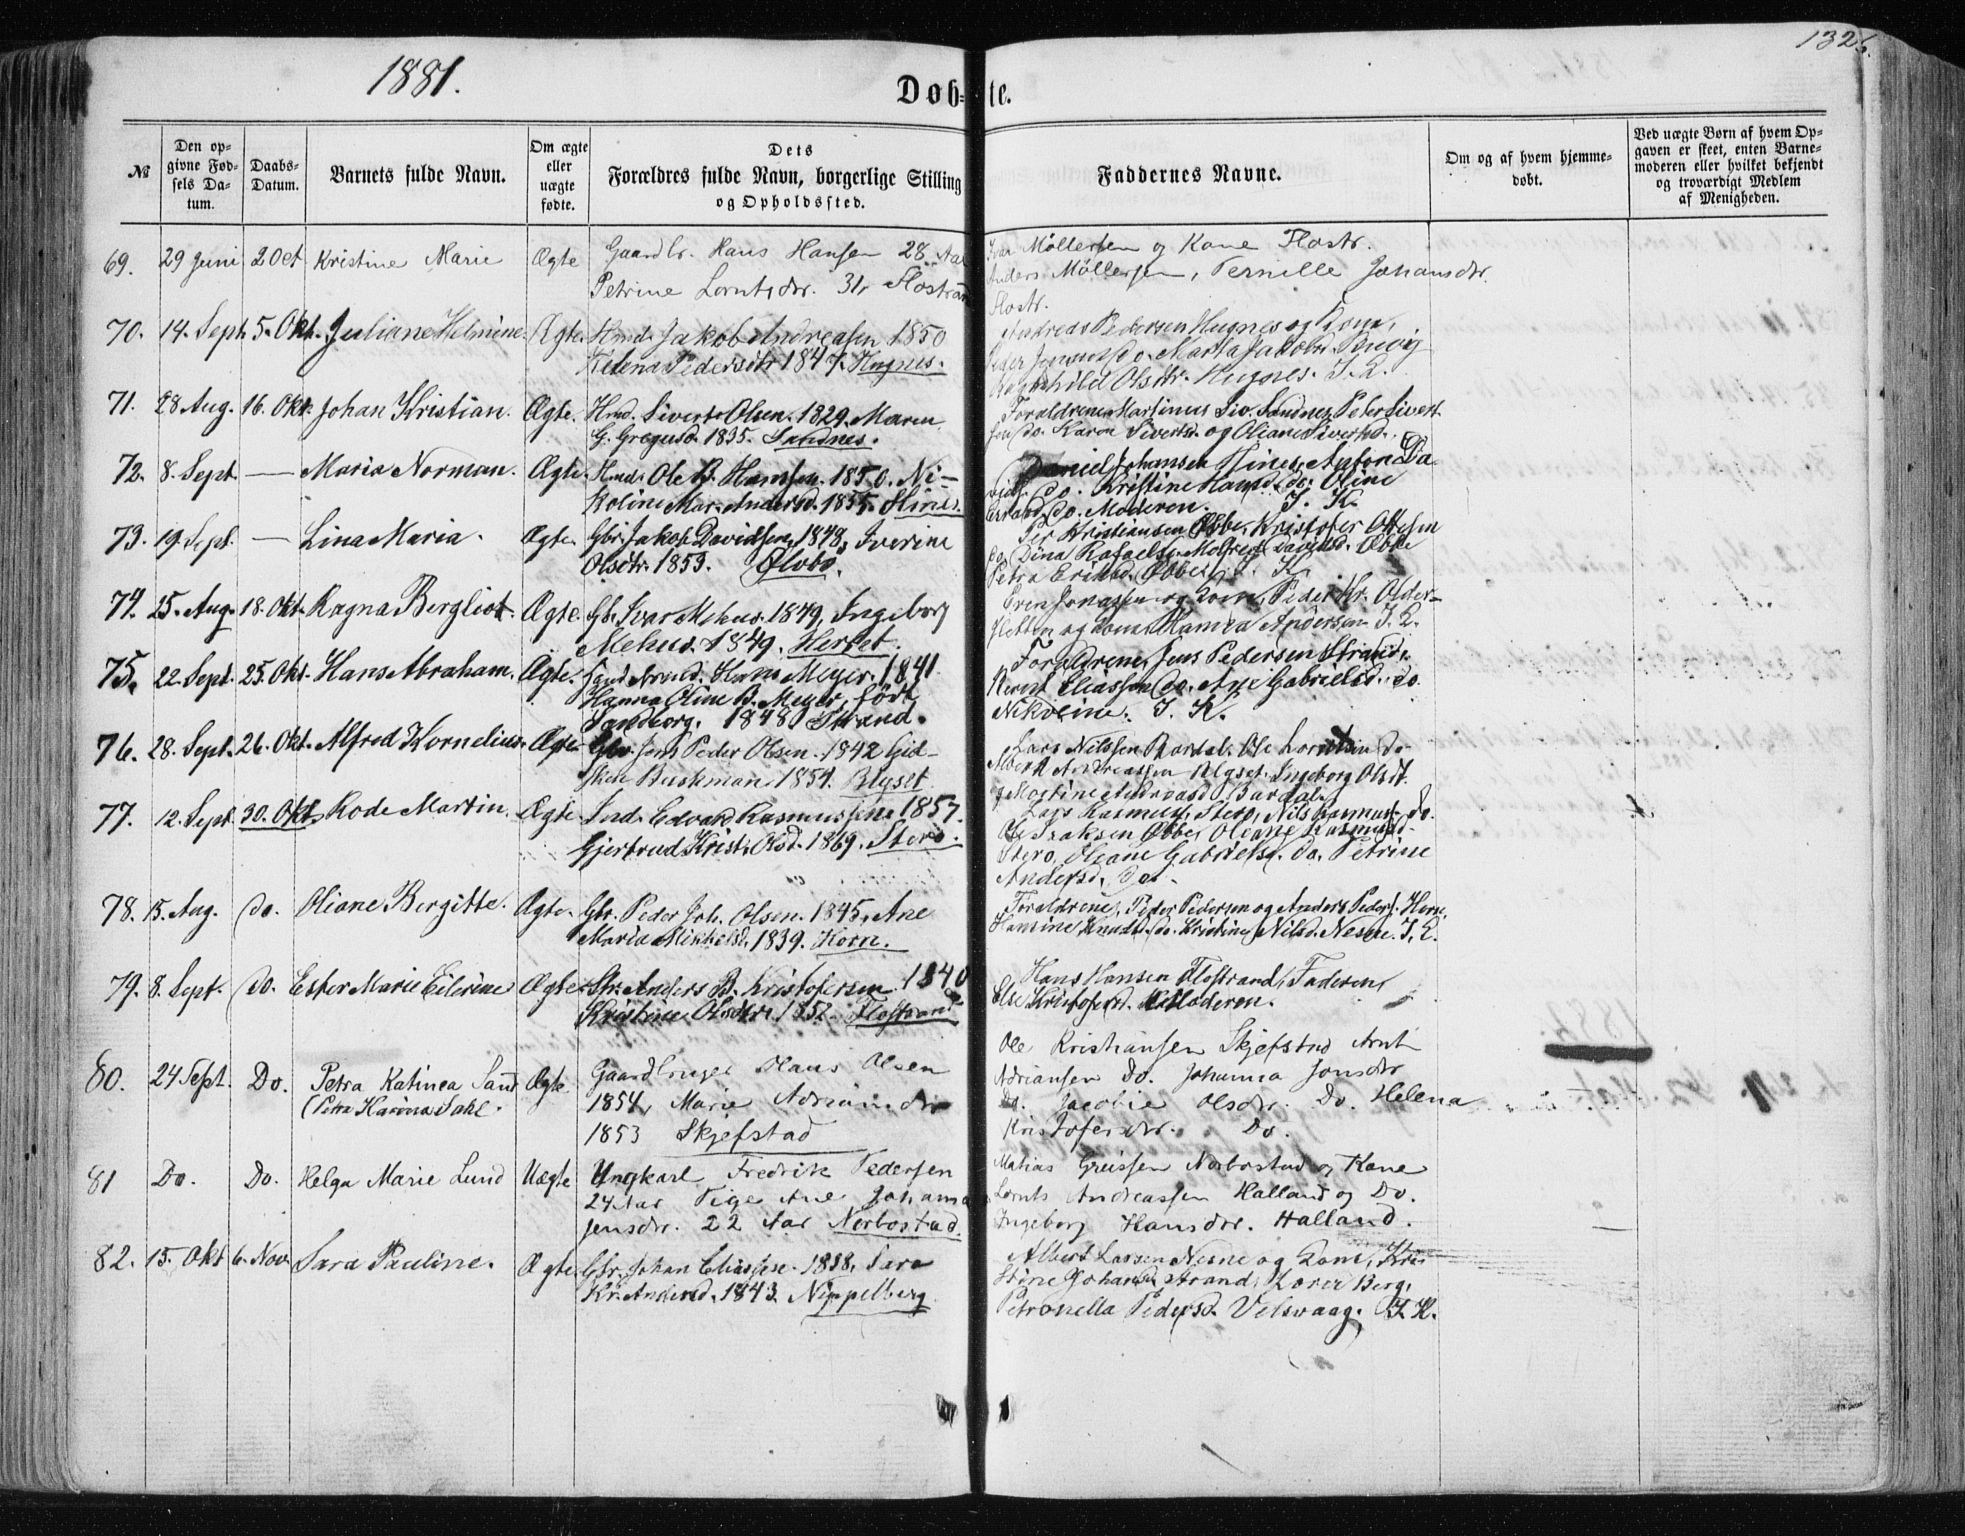 1881.
Døb-te.
132.
№
Den op-
givne Fød-
sels Da-
tum.
Daabs-
Datum.
Barnets fulde Navn.
Om ægte
eller
uægte
fødte.
Dets
Forældres fulde Navn, borgerlige Stilling
og Opholdssted.
Faddernes Navne.
Om og af hvem hjemme-
døbt.
Ved uægte Børn af hvem Op-
gaven er skeet, enten Barne-
moderen eller hvilket bekjendt
og troværdigt Medlem
af Menigheden.
69. 29 Juni 2 Oct Kristine Marie Ægte Gaardbr. Hans Hansen 28 Aar
Petrine Lorntsdr. 31, Flostrand
Ivar Møllersen og Kone Flostr.
Anders Møllersen, Pernille Johansdr.
Flostr.
70. 14. Sept. 5. Okt. Juliane Helmine. Ægte. Hmd. Jakob Andreasen 1850
Helena Pedersdtr 1847. Hugnes.
Andreas Pedersen Hugnes og Kone,
Peder Jensen do. Marta Jakobs.
Ragnhild Olsdtr. Hugnes. I. K.
71. 28 Aug. 16. Okt. Johan Kristian. Ægte. Hmd. Sivert Olsen. 1829. Maren
G. Gregusd. 1835. Sandnes.
Forældrene Martinus Siv. Sandnes, Peter Sivert
sen do. Karen Sivertsd. og Oliane Sivertsd.
72. 8. Sept. — Maria Norman. Ægte. Hmd. Ole B. Hansen. 1850. Ni-
koline Mar. Andersd. 1855. Hines.
Daniel Johansen Hines, Anton Da
do. Kristine Hansd. do. Oline
do. Moderen. I. K.
73. 19. Sept. — Lina Maria. Ægte. Gbr. Jakob Davidsen, 1848, Iverine
Olsdtr. 1853.
Per Kristiansen Æbbe, Kristofer Ottesen
do, Dina Rafaels. Davidsd. Æbbe
Petra Eriksd. Æbbe, I. K.
74. 25. Aug. 18. Okt. Ragna Bergliot. Ægte. Gb. Ivar Mehus. 1849, Ingeborg
Mehus. 1849. Herset.
Iver Jonassen og Kone, Peder Kr. Older-
og Kone, Hanna Andersen. I. K.
75. 22. Sept. 25. Okt. Hans Abraham. Ægte. Hans Meyer. 1841
Hanna Oline B. Meyer, født
Sandborg. 1848 Strand.
Forældrene, Jens Pedersen Strand,
Bernt Eliassen do. Ane Gabrielsd. do.
Nikoline. I. K.
76. 28. Sept. 26. Okt. Alfred Kornelius. Ægte. Gbr. Jens Peder Olsen. 1842 Gid-
sken Buskman. 1854. Blyset
Lars Nilssen Bardal. Ole Lorntsen do.
Albert Andreassen Blyset. Ingeborg Olsdt.
Bardal.
77. 12. Sept. 30. Okt. Rode Martin. Ægte. Ind. Edvak Rasmussen 1857.
Gjertrud Krist. Olsd. 1869. Sterø.
Lars Rasmuss. Sterø, Nils Rasmuss. do.
Ole Isaksen Æbbe, Oleane Rasmusd.
Sterø, Oleane Gabrielsd. do. Petrine
Andersd. do.
78. 15. Aug. do. Oliane Bergitte. Ægte. Gbr. Peder Joh. Olsen. 1845, Ane
Maria Mikkelsd. 1839. Horn.
Forældrene, Peder Pedersen og Anders Peders. Horn,
Hansine Knuds. do. Kristine Nilsd. Nesne. I. K.
79. 8. Sept. do. Ester Marie Eilerine Ægte. Str. Anders B. Kristofersen. 1840
Kristine Olsdtr. 1852. Flostrand
Hans Hansen Flostrand, Faderen,
Else Kristofersd. Moderen.
80. 24 Sept. Do. Petra Katinea Sand
(Petra Karina Dahl. Ægte Gaardbruger Hans Olsen
1854, Marie Adriansdr
1853 Skjefstad
Ole Kristiansen Skjefstad Arnt
Adriansen Do. Johanna Jonsdr
Do. Jacobie Olsdr. Do. Helena
Kristofersdr. Do.
81 Do. Do. Helga Marie Lund Uægte Ungkarl Fredrik Pedersen
24 Aar Pige Ane Johanna
Jensdr. 22 Aar Norbostad.
Matias Greissen Norbostad og Kone
Lornts Andreassen Halland og Do.
Ingeborg Hansdr. Halland.
82. 15. Okt 6. Nov. Sara Pauline. Ægte Gbr. Johan Eliassen. 1838, Sara
Kr. Andersd. 1843. Nippelberg
Albert Larsen Nesne og Kone, Kri-
stine Johansd. Strand, Berg,
Petronella Pedersd. Velsvaag. I. K.